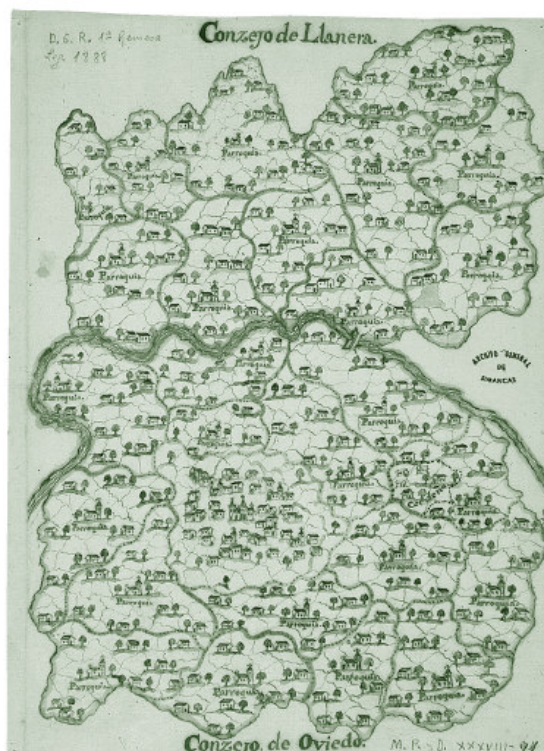 Conzejo de Llanera.
D. G. R. 1ª Remesa
Leg. 1888
Parroquia.
Parroquia
Parroquia.
Parroquia
Parroquia.
Parroquia.
Parroquia
Parroquia.
Parroquia.
Parroquia
ARCHIVO GENERAL
DE
SIMANCAS
Parroquia
Parroquia.
Parroquia
Parroquia
Parroquia
Parroquia
Parroquia
Parroquia.
Parroquia
Parroquia
Parroquia
Parroquia
Conzejo, de Oviedo.
M. P. y D. XXXVIII-94